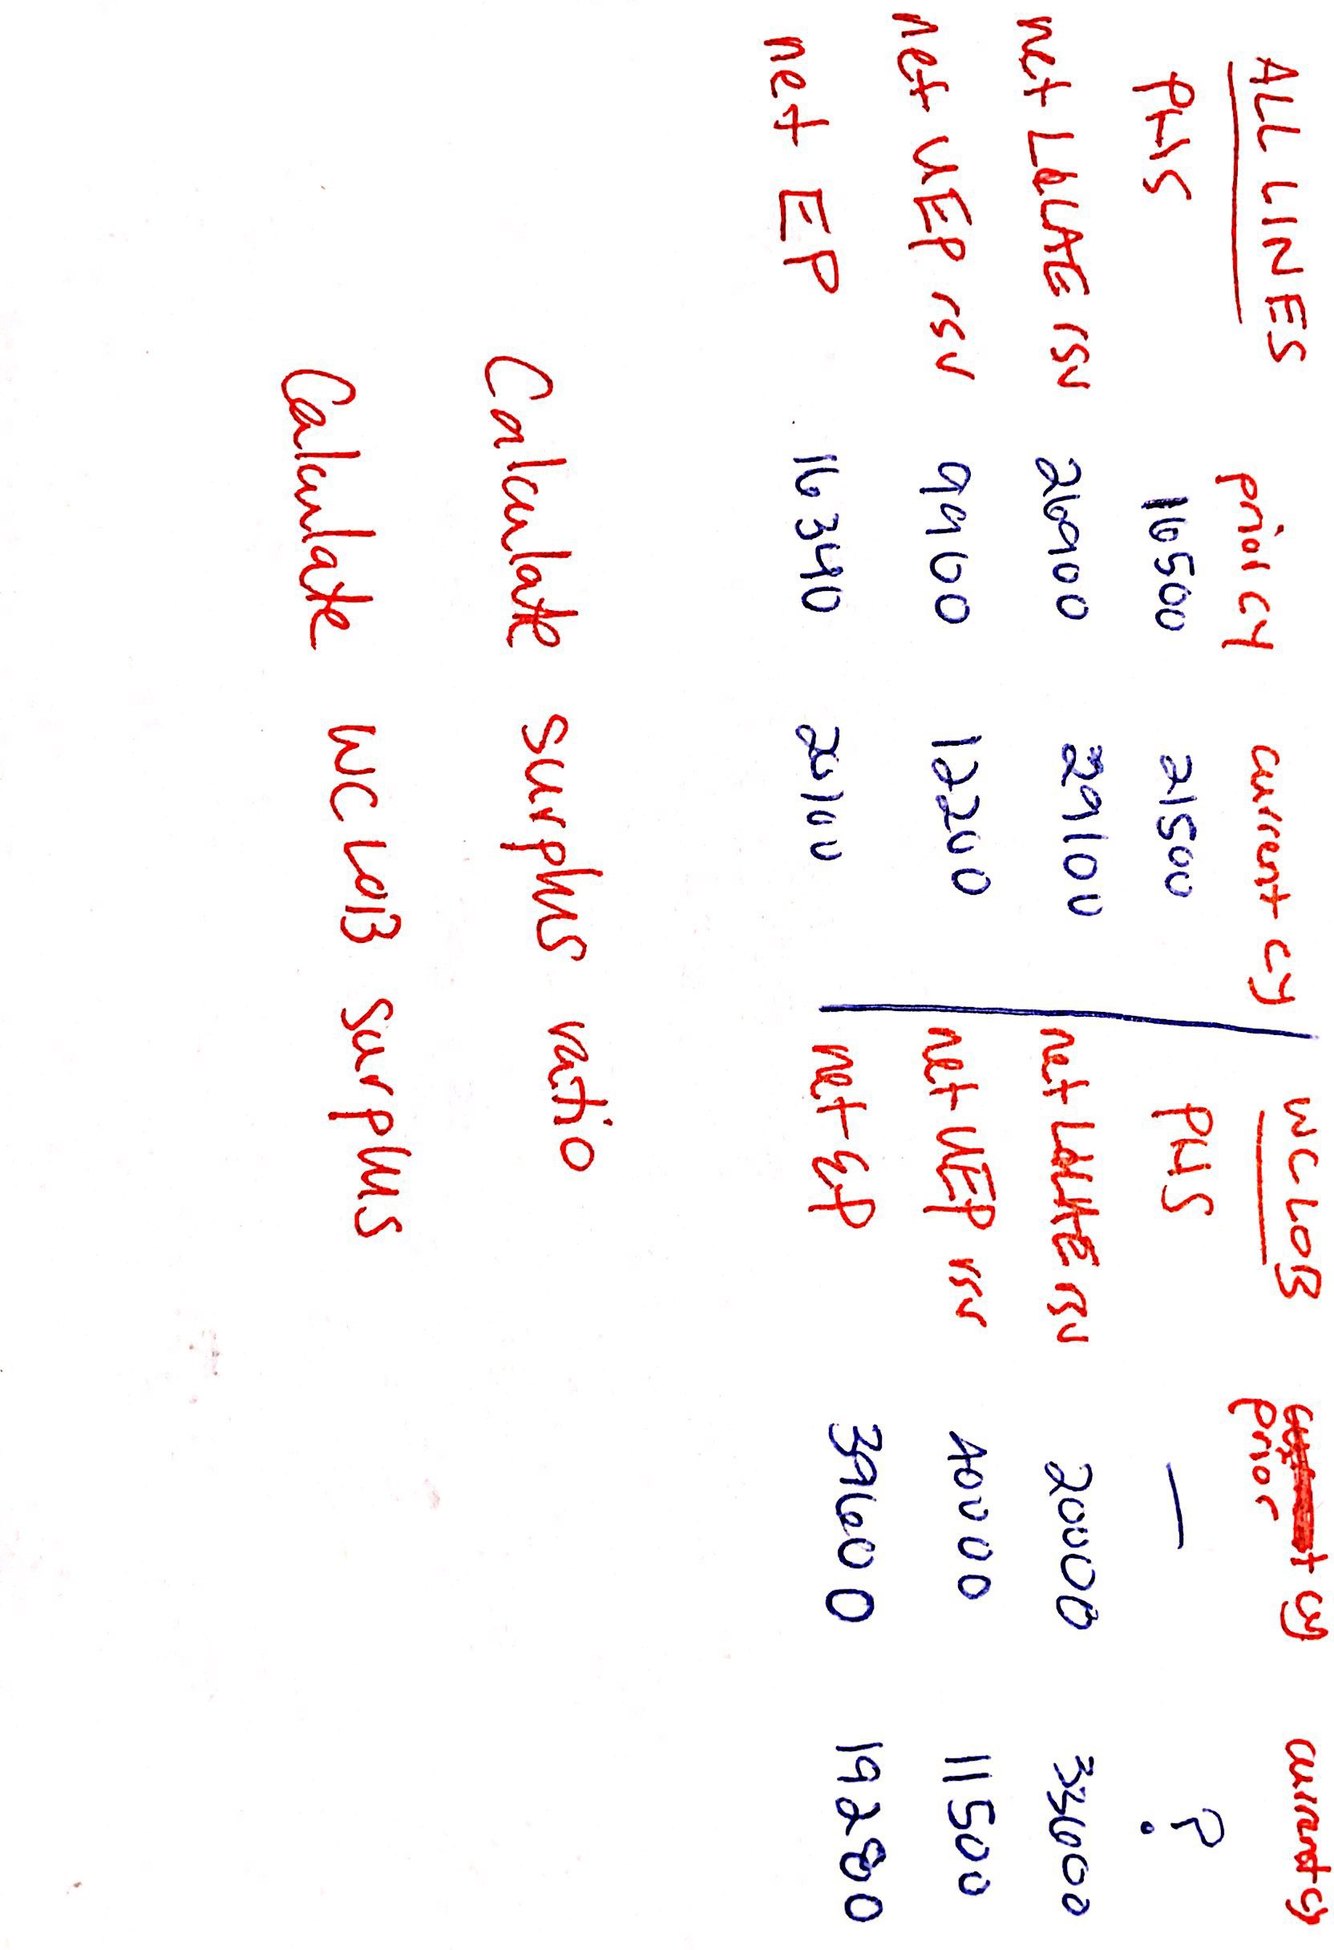 ALL LINES prior CY current CY
PHS 16500 21500
net L&LAE rsv 26900 29100
net UEP rsv 9960 12200
net EP 16340 20100
WC LOB prior cy current cy
PHS — ?
net L&LAE rsv 20000 33600
net UEP rsv 40000 11500
net EP 39600 19280
Calculate surplus ratio
Calculate WC LOB surplus